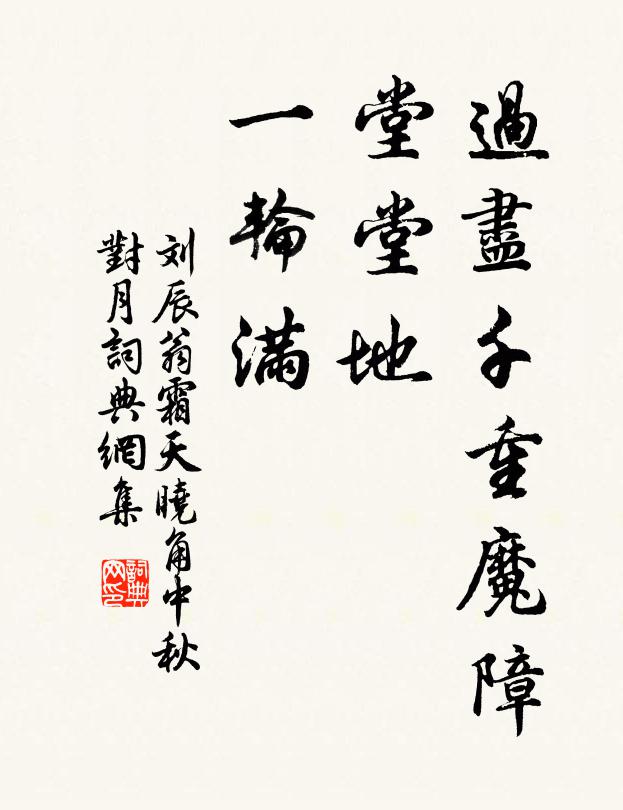 過盡千重魔障
堂堂地
一輪滿
刘辰翁霜天曉角中秋
對月詞典網集
詞典
网印